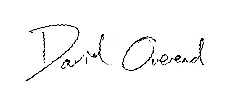 David Overend